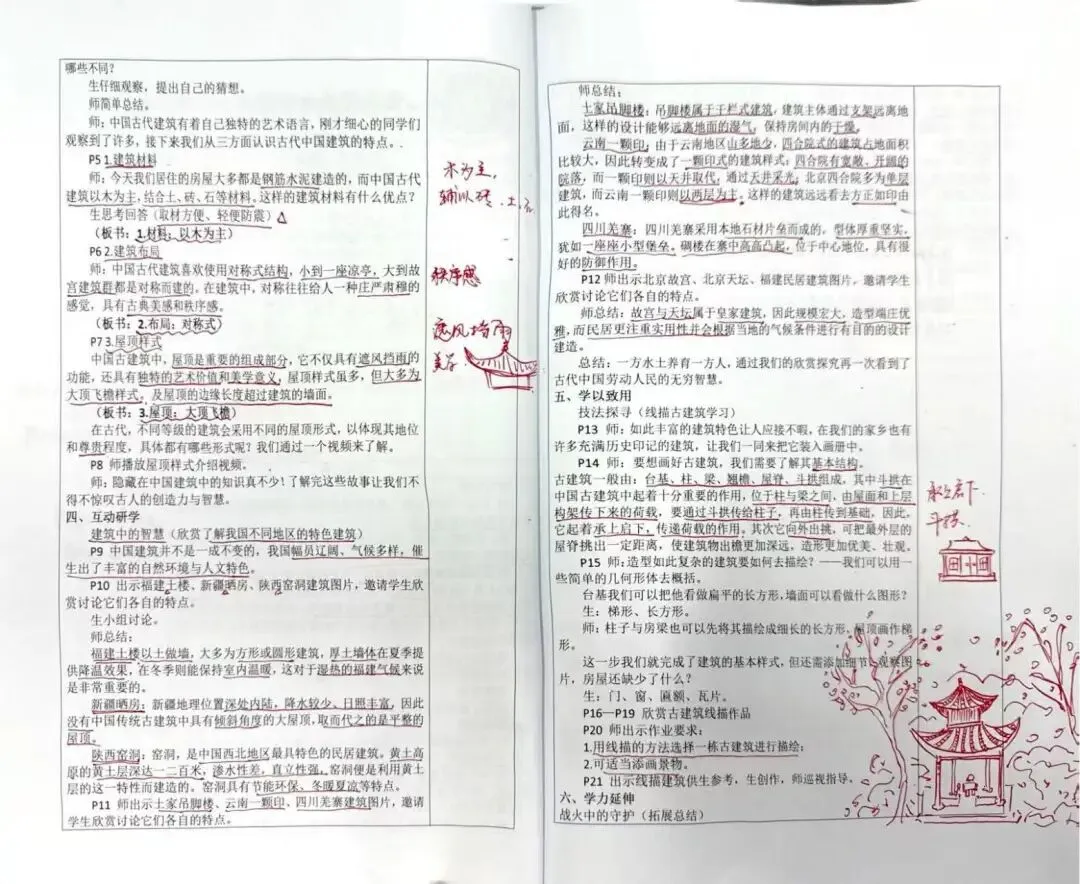 哪些不同?
生仔细观察,提出自己的猜想。
师简单总结。
师:中国古代建筑有着自己独特的艺术语言,刚才细心的同学们
观察到了许多,接下来我们从三方面认识古代中国建筑的特点。.
P5 1.建筑材料
师:今天我们居住的房屋大多都是钢筋水泥建造的,而中国古代
建筑以木为主,结合土、砖、石等材料。这样的建筑材料有什么优点?
生思考回答(取材方便、轻便防震)
(板书:1.材料:以木为主)
P6 2.建筑布局
师:中国古代建筑喜欢使用对称式结构,小到一座凉亭,大到故
宫建筑群都是对称而建的。在建筑中,对称往往给人一种庄严肃穆的
感觉,具有古典美感和秩序感。
(板书:2.布局:对称式)
P7 3.屋顶样式
中国古建筑中,屋顶是重要的组成部分,它不仅具有遮风挡雨的
功能,还具有独特的艺术价值和美学意义,屋顶样式虽多,但大多为
大顶飞檐样式,及屋顶的边缘长度超过建筑的墙面。
(板书:3.屋顶:大顶飞檐)
在古代,不同等级的建筑会采用不同的屋顶形式,以体现其地位
和尊贵程度,具体都有哪些形式呢?我们通过一个视频来了解。
P8 师播放屋顶样式介绍视频。
师:隐藏在中国建筑中的知识真不少!了解完这些故事让我们不
得不惊叹古人的创造力与智慧。
四、互动研学
建筑中的智慧(欣赏了解我国不同地区的特色建筑)
P9 中国建筑并不是一成不变的,我国幅员辽阔、气候多样,催
生出了丰富的自然环境与人文特色。
P10 出示福建土楼、新疆晒房、陕西窑洞建筑图片,邀请学生欣
赏讨论它们各自的特点。
生小组讨论。
师总结:
福建土楼以土做墙,大多为方形或圆形建筑,厚土墙体在夏季提
供降温效果,在冬季则能保持室内温暖,这对于湿热的福建气候来说
是非常重要的。
新疆晒房:新疆地理位置深处内陆,降水较少、日照丰富,因此
没有中国传统古建筑中具有倾斜角度的大屋顶,取而代之的是平整的
屋顶。
陕西窑洞:窑洞,是中国西北地区最具特色的民居建筑。黄土高
原的黄土层深达一二百米,渗水性差,直立性强。窑洞便是利用黄土
层的这一特性而建造的。窑洞具有节能环保、冬暖夏凉等特点。
P11 师出示土家吊脚楼、云南一颗印、四川羌寨建筑图片,邀请
学生欣赏讨论它们各自的特点。
木为主,
辅以砖、土、石
秩序感
遮风挡雨
美学
师总结:
土家吊脚楼:吊脚楼属于干栏式建筑,建筑主体通过支架远离地
面,这样的设计能够远离地面的湿气,保持房间内的干燥。
云南一颗印,由于云南地区山多地少,四合院式的建筑占地面积
比较大,因此转变成了一颗印式的建筑样式;四合院有宽敞、开阔的
院落,而一颗印则以天井取代,通过天井采光。北京四合院多为单层
建筑,而云南一颗印则以两层为主。这样的建筑远远看去方正如印由
此得名。
四川羌寨:四川羌寨采用本地石材片垒而成的,型体厚重坚实,
犹如一座座小型堡垒。碉楼在寨中高高凸起,位于中心地位,具有很
好的防御作用。
P12 师出示北京故宫、北京天坛、福建民居建筑图片,邀请学生
欣赏讨论它们各自的特点。
师总结:故宫与天坛属于皇家建筑,因此规模宏大,造型端庄优
雅,而民居更注重实用性并会根据当地的气候条件进行有目的的设计
建造。
总结:一方水土养有一方人,通过我们的欣赏探究再一次看到了
古代中国劳动人民的无穷智慧。
五、学以致用
技法探寻(线描古建筑学习)
P13 师:如此丰富的建筑特色让人应接不暇,在我们的家乡也有
许多充满历史印记的建筑,让我们一同来把它装入画册中。
P14 师:要想画好古建筑,我们需要了解其基本结构。
古建筑一般由:台基、柱、梁、翘檐、屋脊、斗拱组成,其中斗拱在
中国古建筑中起着十分重要的作用,位于柱与梁之间,由屋面和上层
构架传下来的荷载,要通过斗拱传给柱子,再由柱传到基础,因此,
它起着承上启下,传递荷载的作用。其次它向外出挑,可把最外层的
屋脊挑出一定距离,使建筑物出檐更加深远,造形更加优美、壮观。
P15 师:造型如此复杂的建筑要如何去描绘?——我们可以用一
些简单的几何形体去概括。
台基我们可以把他看做扁平的长方形,墙面可以看做什么图形?
生:梯形、长方形。
师:柱子与房梁也可以先将其描绘成细长的长方形,屋顶画作梯
形。
这一步我们就完成了建筑的基本样式,但还需添加细节,观察图
片,房屋还缺少了什么?
生:门、窗、匾额、瓦片。
P16—P19 欣赏古建筑线描作品
P20 师出示作业要求:
1.用线描的方法选择一栋古建筑进行描绘;
2.可适当添画景物。
P21 出示线描建筑供生参考,生创作,师巡视指导。
六、学力延伸
战火中的守护(拓展总结)
承上启下
斗拱